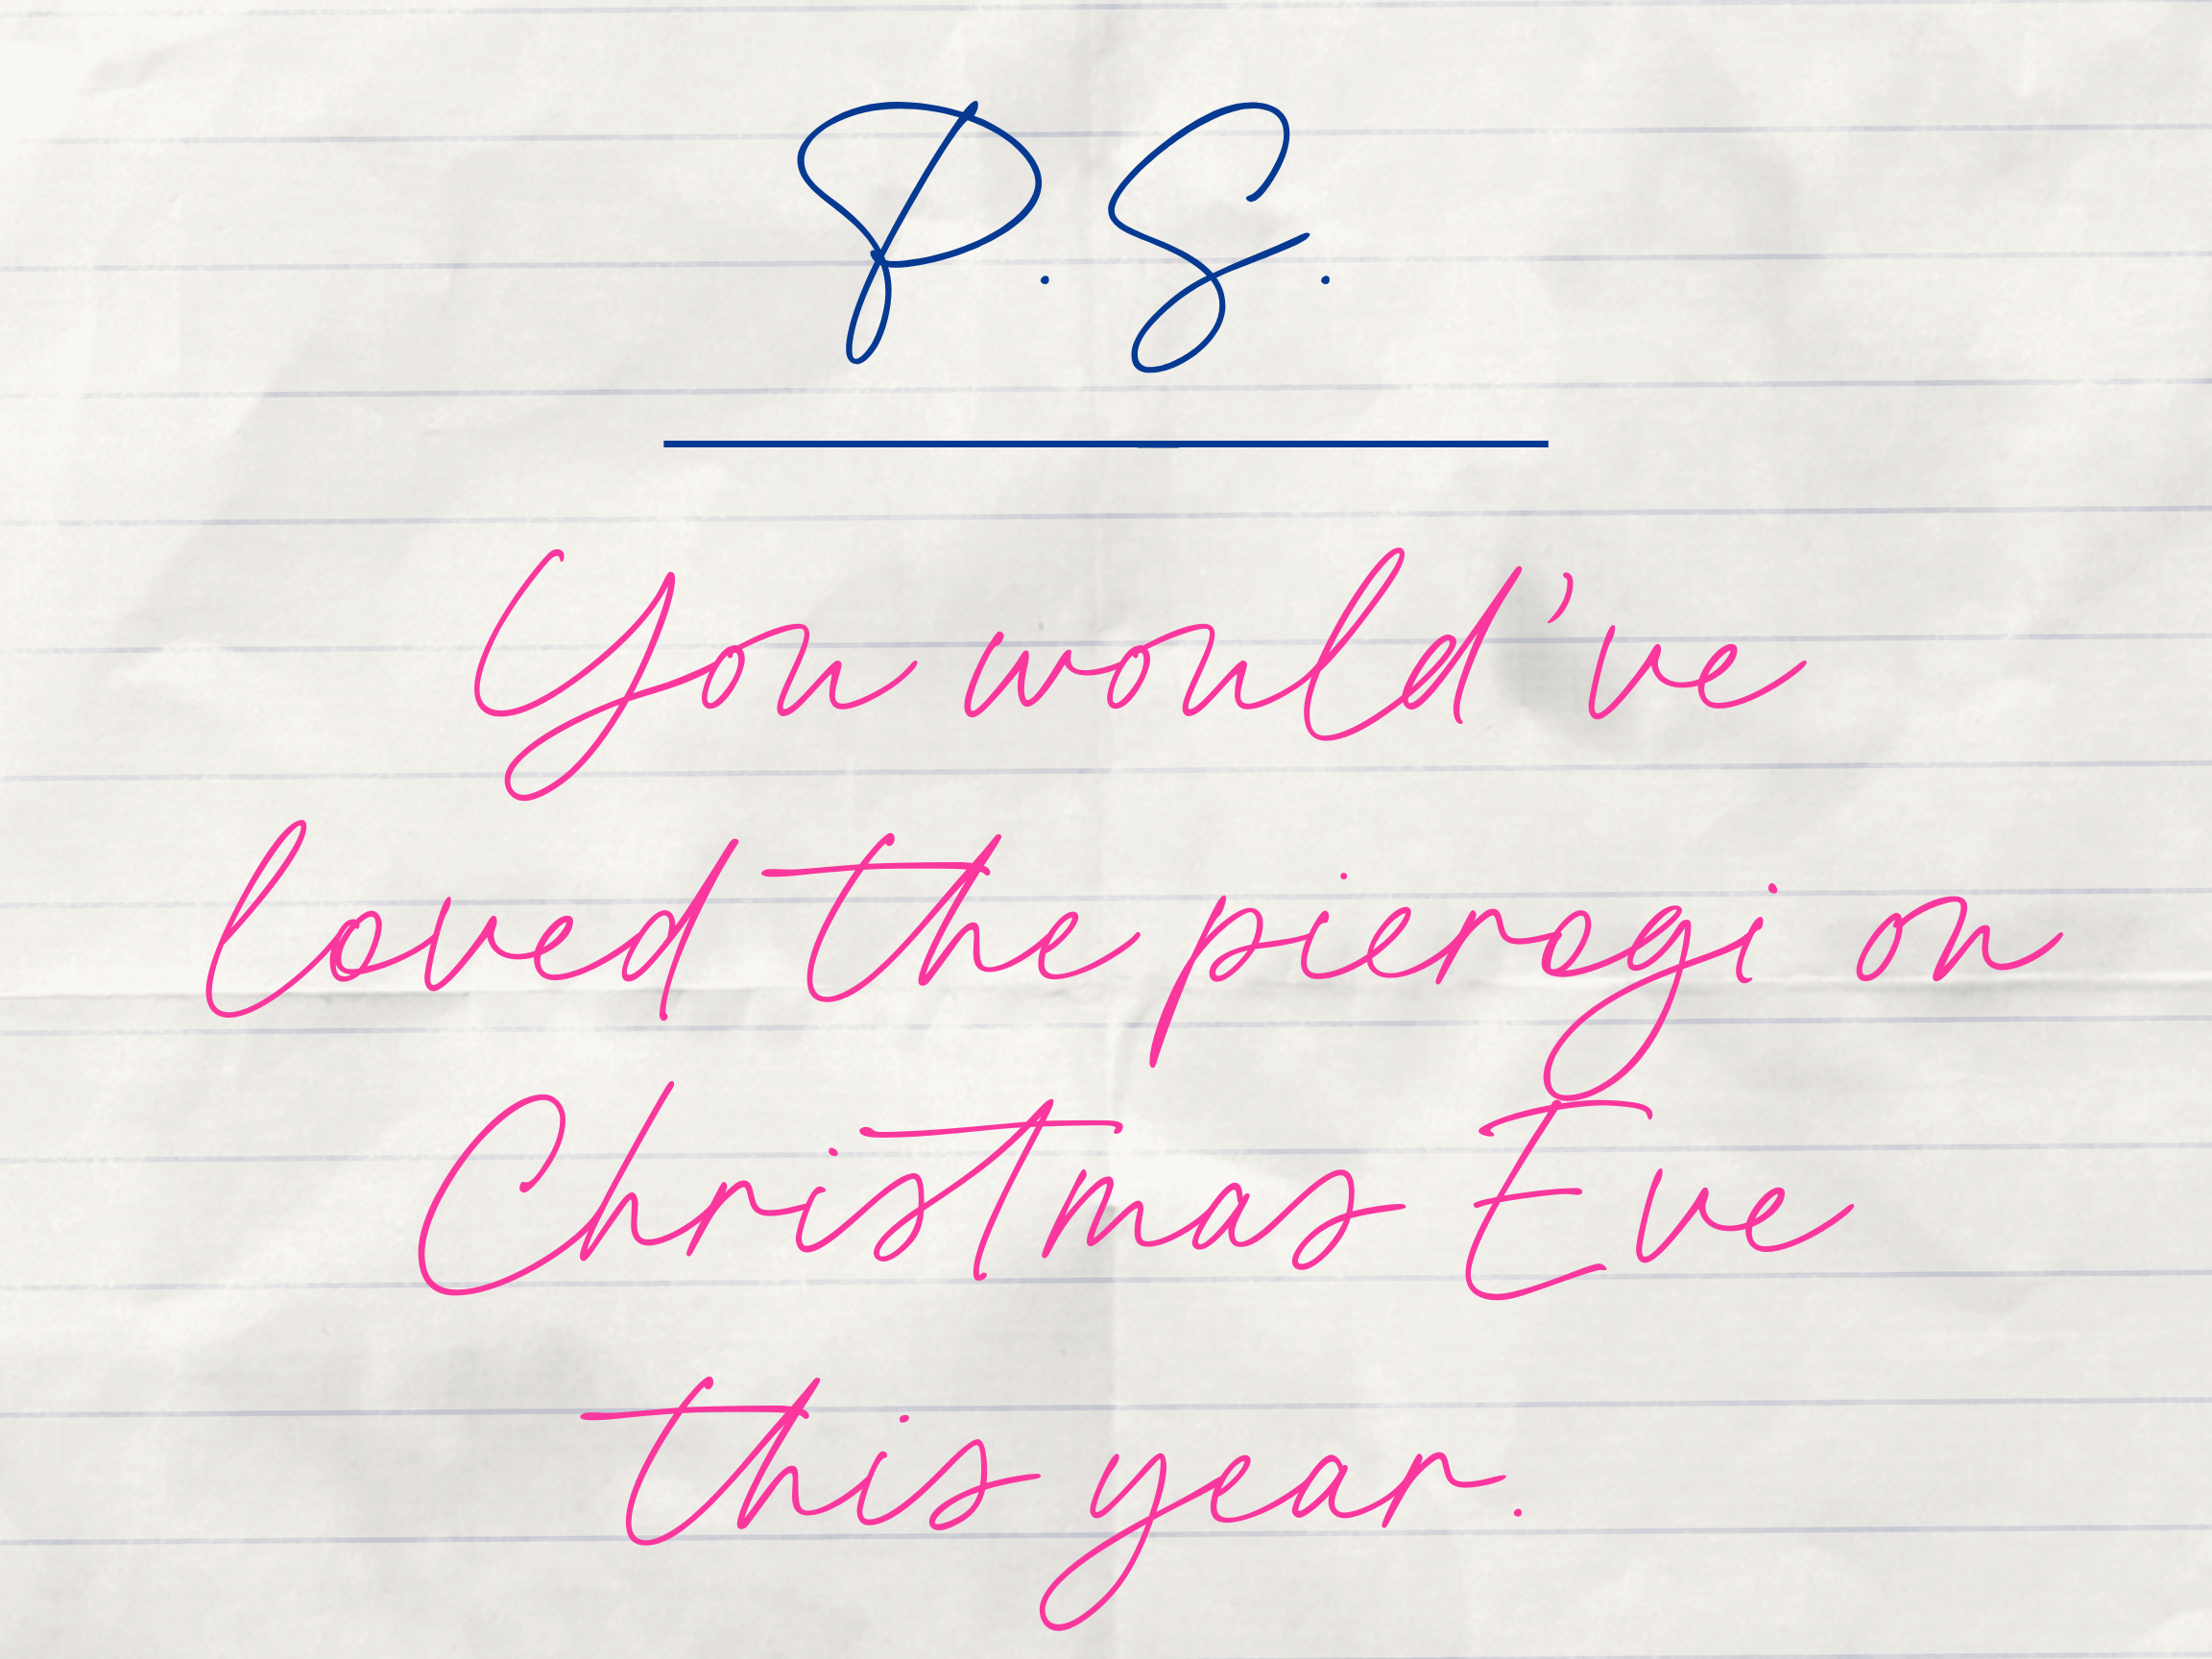 P.S.
You would've
loved the pierogi on
Christmas Eve
this year.